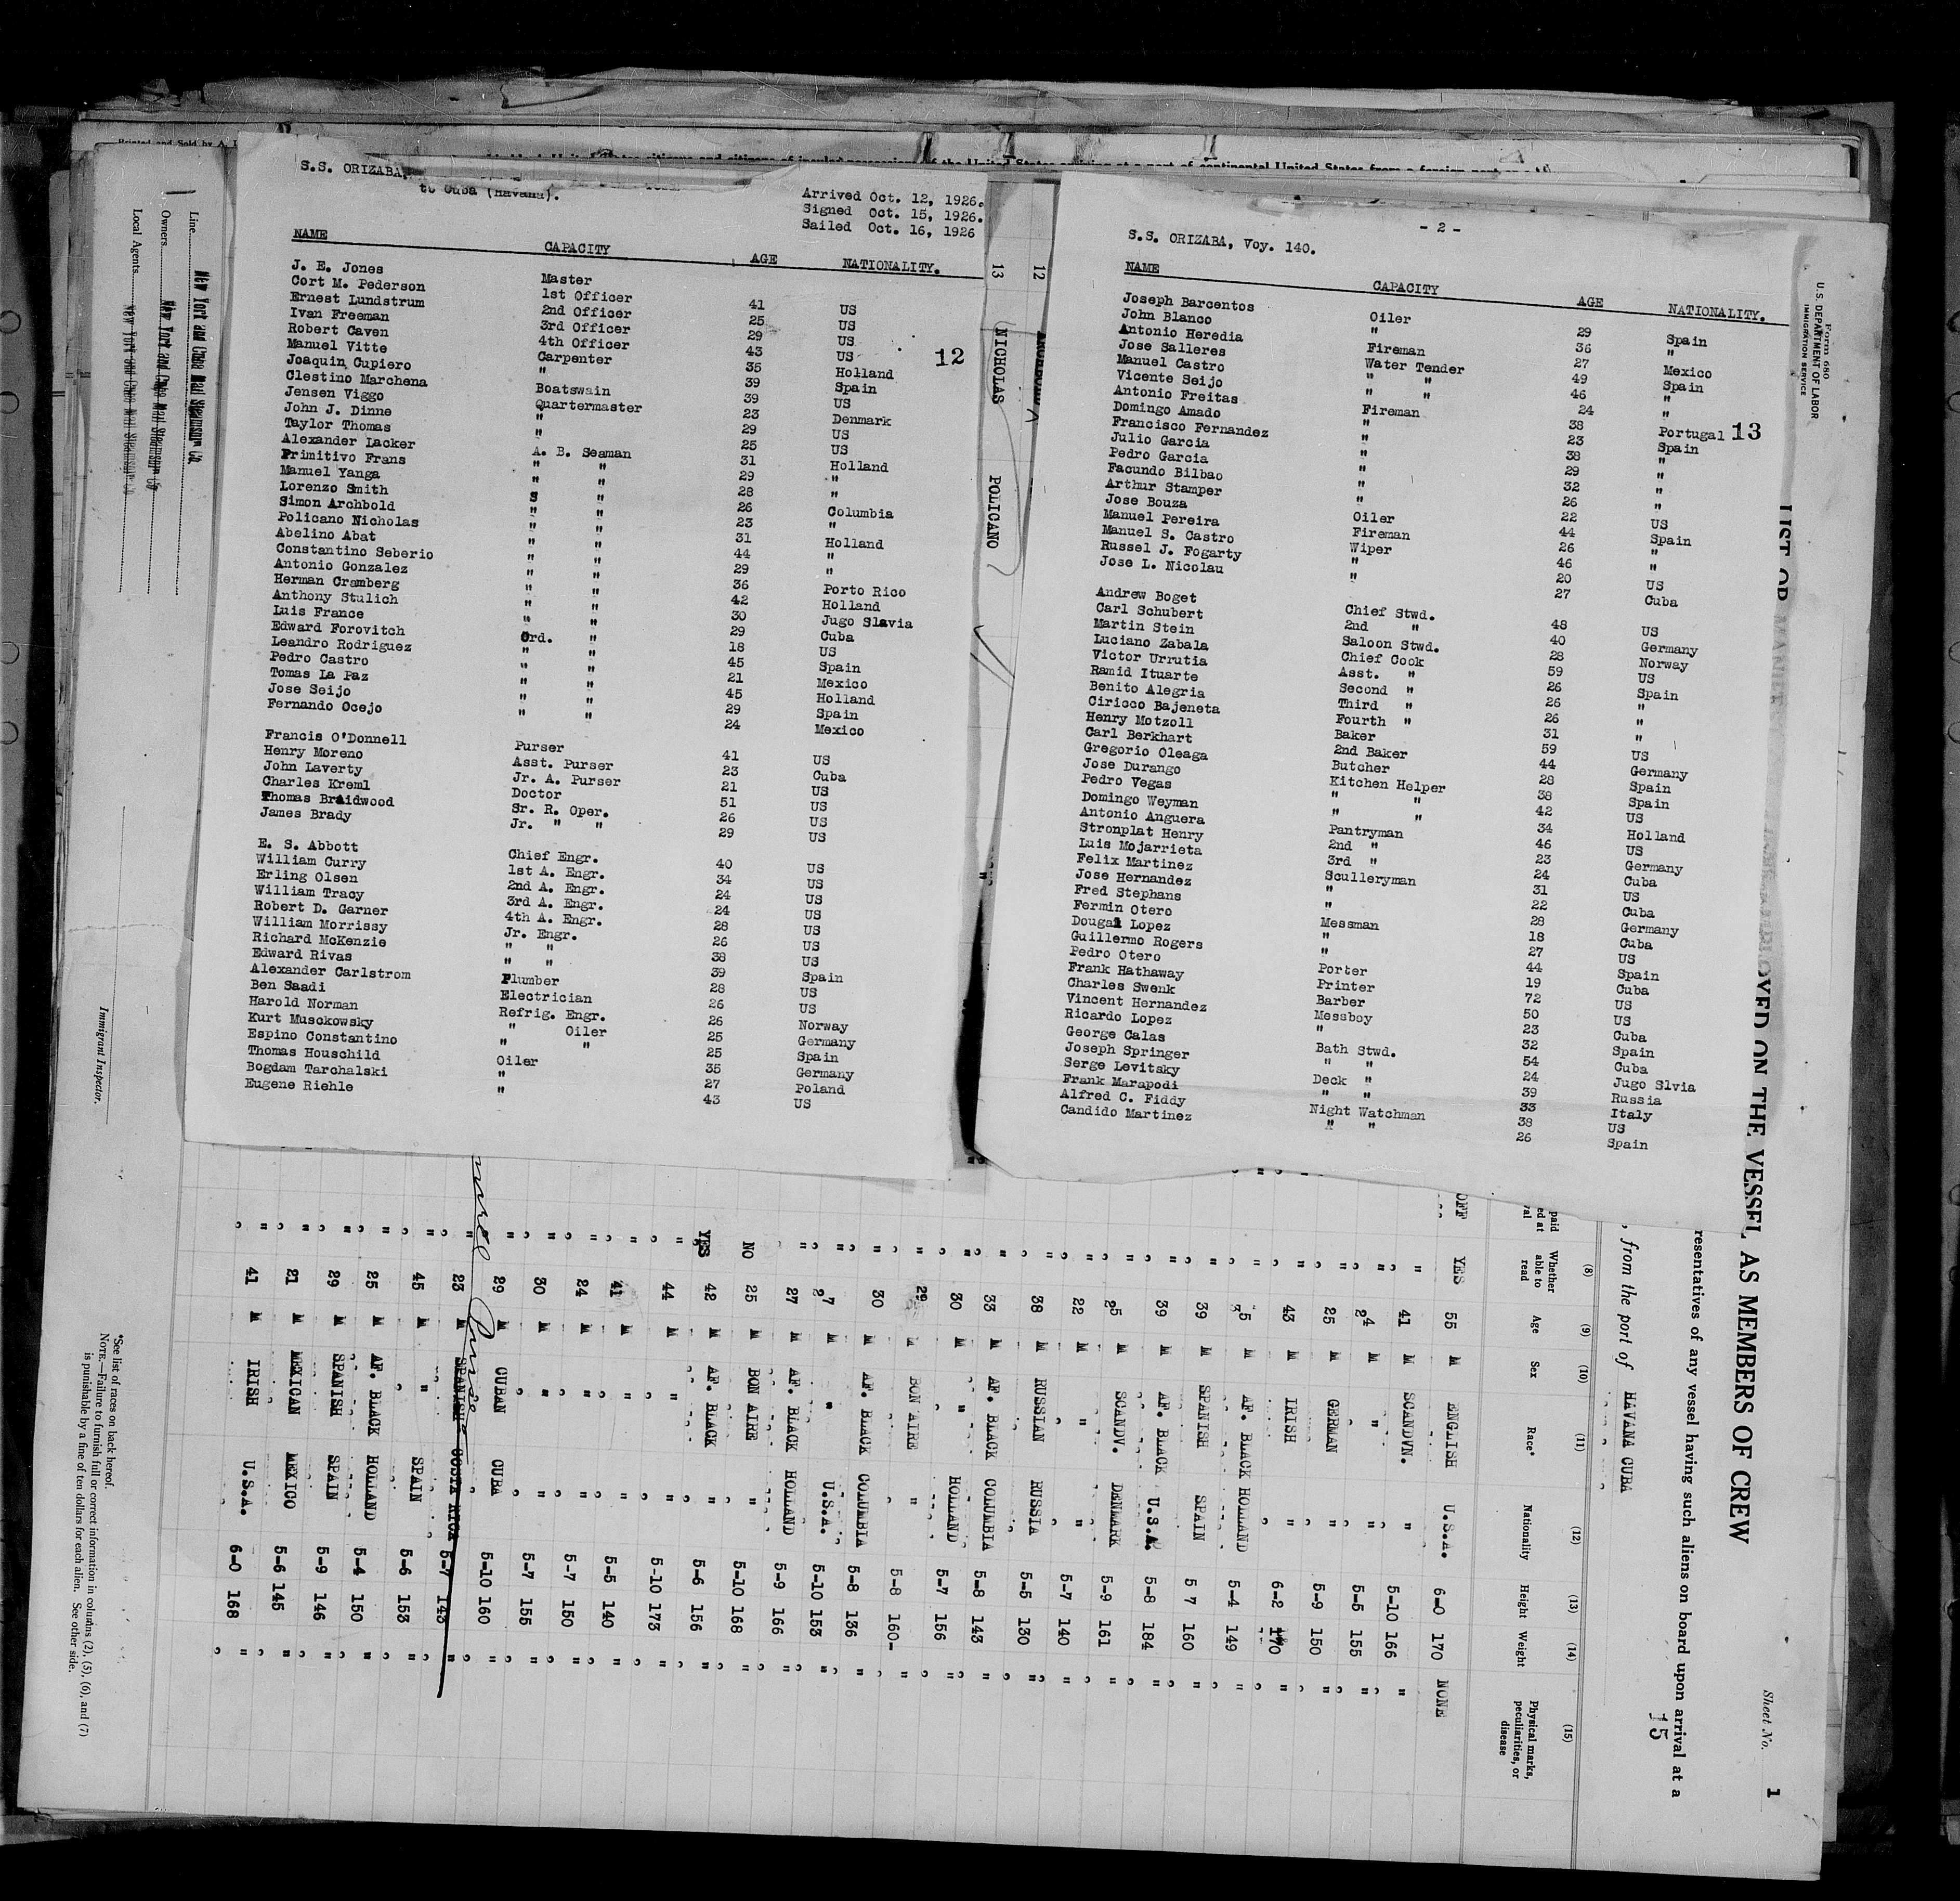 S.S. ORIZABA,
to Cuba (Havana).
Arrived Oct. 12, 1926.
Signed Oct. 15, 1926.
Sailed Oct. 16, 1926
NAME CAPACITY AGE NATIONALITY.
J. E. Jones Master
Cort M. Pederson 1st Officer 41 US
Ernest Lundstrum 2nd Officer 25 US
Ivan Freeman 3rd Officer 29 US
Robert Caven 4th Officer 43 US
Manuel Vitte Carpenter 35 Holland
Joaquin Cupiero " 39 Spain
Clestino Marchena Boatswain 39 US
Jensen Viggo Quartermaster 23 Denmark
John J. Dinne " 29 US
Taylor Thomas " 25 US
Alexander Lacker A. B. Seaman 31 Holland
Primitivo Frans " " 29 "
Manuel Yanga " " 28 "
Lorenzo Smith s " 26 Columbia
Simon Archbold " " 23 "
Policano Nicholas " " 31 Holland
Abelino Abat " " 44 "
Constantino Seberio " " 29 "
Antonio Gonzalez " " 36 Porto Rico
Herman Cramberg " " 42 Holland
Anthony Stulich " " 30 Jugo Slavia
Luis France " " 29 Cuba
Edward Forovitch Ord. " 18 US
Leandro Rodriguez " " 45 Spain
Pedro Castro " " 21 Mexico
Tomas La Paz " " 45 Holland
Jose Seijo " " 29 Spain
Fernando Ocejo " " 24 Mexico
Francis O'Donnell Purser 41 US
Henry Moreno Asst. Purser 23 Cuba
John Laverty Jr. A. Purser 21 US
Charles Kreml Doctor 51 US
Thomas Braidwood Sr. R. Oper. 26 US
James Brady Jr. " " 29 US
E. S. Abbott Chief Engr. 40 US
William Curry 1st A. Engr. 34 US
Erling Olsen 2nd A. Engr. 24 US
William Tracy 3rd A. Engr. 24 US
Robert D. Garner 4th A. Engr. 28 US
William Morrissy Jr. Engr. 26 US
Richard McKenzie " " 38 US
Edward Rivas " " 39 Spain
Alexander Carlstrom Plumber 28 US
Ben Saadi Electrician 26 US
Harold Norman Refrig. Engr. 26 Norway
Kurt Musckowsky " Oiler 25 Germany
Espino Constantino " " 25 Spain
Thomas Houschild Oiler 35 Germany
Bogdam Tarchalski " 27 Poland
Eugene Riehle " 43 US
12
13 NICHOLAS POLICANO
12
- 2 -
S.S. ORIZABA, Voy. 140.
NAME CAPACITY AGE NATIONALITY.
Joseph Barcentos Oiler 29 Spain
John Blanco " 36 "
Antonio Heredia Fireman 27 Mexico
Jose Salleres Water Tender 49 Spain
Manuel Castro " " 46 "
Vicente Seijo " " 24 "
Antonio Freitas Fireman 38 Portugal
Domingo Amado " 23 Spain
Francisco Fernandez " 38 "
Julio Garcia " 29 "
Pedro Garcia " 32 "
Facundo Bilbao " 26 "
Arthur Stamper " 22 US
Jose Bouza Oiler 44 Spain
Manuel Pereira Fireman 26 "
Manuel S. Castro Wiper 46 "
Russel J. Fogarty " 20 US
Jose L. Nicolau " 27 Cuba
Andrew Boget Chief Stwd. 48 US
Carl Schubert 2nd " 40 Germany
Martin Stein Saloon Stwd. 28 Norway
Luciano Zabala Chief Cook 59 US
Victor Urrutia Asst. " 26 Spain
Ramid Ituarte Second " 26 "
Benito Alegria Third " 26 "
Ciricco Bajeneta Fourth " 31 "
Henry Motzoll Baker 59 US
Carl Berkhart 2nd Baker 44 Germany
Gregorio Oleaga Butcher 28 Spain
Jose Durango Kitchen Helper 38 Spain
Pedro Vegas " " 42 US
Domingo Weyman " " 34 Holland
Antonio Anguera Pantryman 46 US
Stronplat Henry 2nd " 23 Germany
Luis Mojarrieta 3rd " 24 Cuba
Felix Martinez Sculleryman 31 US
Jose Hernandez " 22 Cuba
Fred Stephans " 28 Germany
Fermin Otero Messman 18 Cuba
Dougal Lopez " 27 US
Guillermo Rogers " 44 Spain
Pedro Otero Porter 19 Cuba
Frank Hathaway Printer 72 US
Charles Swenk Barber 50 US
Vincent Hernandez Messboy 23 Cuba
Ricardo Lopez " 32 Spain
George Calas Bath Stwd. 54 Cuba
Joseph Springer " " 24 Jugo Slvia
Serge Levitsky Deck " 39 Russia
Frank Marapodi " " 33 Italy
Alfred C. Fiddy Night Watchman 38 US
Candido Martinez " " 26 Spain
13
Form 680
U.S. DEPARTMENT OF LABOR
IMMIGRATION SERVICE
Sheet No. 1
LIST OR EMPLOYED ON THE VESSEL AS MEMBERS OF CREW
resentatives of any vessel having such aliens on board upon arrival at a
15
, from the port of HAVANA CUBA
(8) (9) (10) (11) (12) (13) (14) (15)
Whether able to read Age Sex Race* Nationality Height Weight Physical marks, peculiarities, or disease
OFF YES 55 M ENGLISH U.S.A. 6-0 170 NONE
" 41 M SCANDVN. " 5-10 166 "
" 24 M " " 5-5 155 "
" 25 M GERMAN " 5-9 150 "
" 43 M IRISH " 6-2 170 "
" 35 M AF. BLACK HOLLAND 5-4 149 "
" 39 M SPANISH SPAIN 5 7 160 "
" 39 M AF. BLACK U.S.A. 5-8 184 "
" 25 M SCANDV. DENMARK 5-9 161 "
" 22 M " " 5-7 140 "
" 38 M RUSSIAN RUSSIA 5-5 130 "
" 33 M AF. BLACK COLUMBIA 5-8 143 "
" 30 M " HOLLAND 5-7 156 "
" 29 M BON AIRE " 5-8 160- "
" 30 M AF. BLACK COLUMBIA 5-8 136 "
" 27 M " U.S.A. 5-10 153 "
" 27 M AF. BLACK HOLLAND 5-9 166 "
NO 25 M BON AIRE " 5-10 168 "
YES 42 M AF. BLACK " 5-6 156 "
" 44 M " " 5-10 173 "
" 41 M " " 5-5 140 "
" 24 M " " 5-7 150 "
" 30 M " " 5-7 155 "
" 29 M CUBAN CUBA 5-10 160 "
" 23 M SPANISH COSTA RICA 5-7 143 "
" 45 M " SPAIN 5-6 153 "
" 25 M AF. BLACK HOLLAND 5-4 150 "
" 29 M SPANISH SPAIN 5-9 146 "
" 21 M MEXICAN MEXICO 5-6 145 "
" 41 M IRISH U.S.A. 6-0 168 "
Line New York and Cuba Mail Steamship Co.
Owners New York and Cuba Mail Steamship Co
Local Agents New York and Cuba Mail Steamship Co
Immigrant Inspector.
*See list of races on back hereof.
NOTE.—Failure to furnish full or correct information in columns (2), (5), (6), and (7)
is punishable by a fine of ten dollars for each alien. See other side.